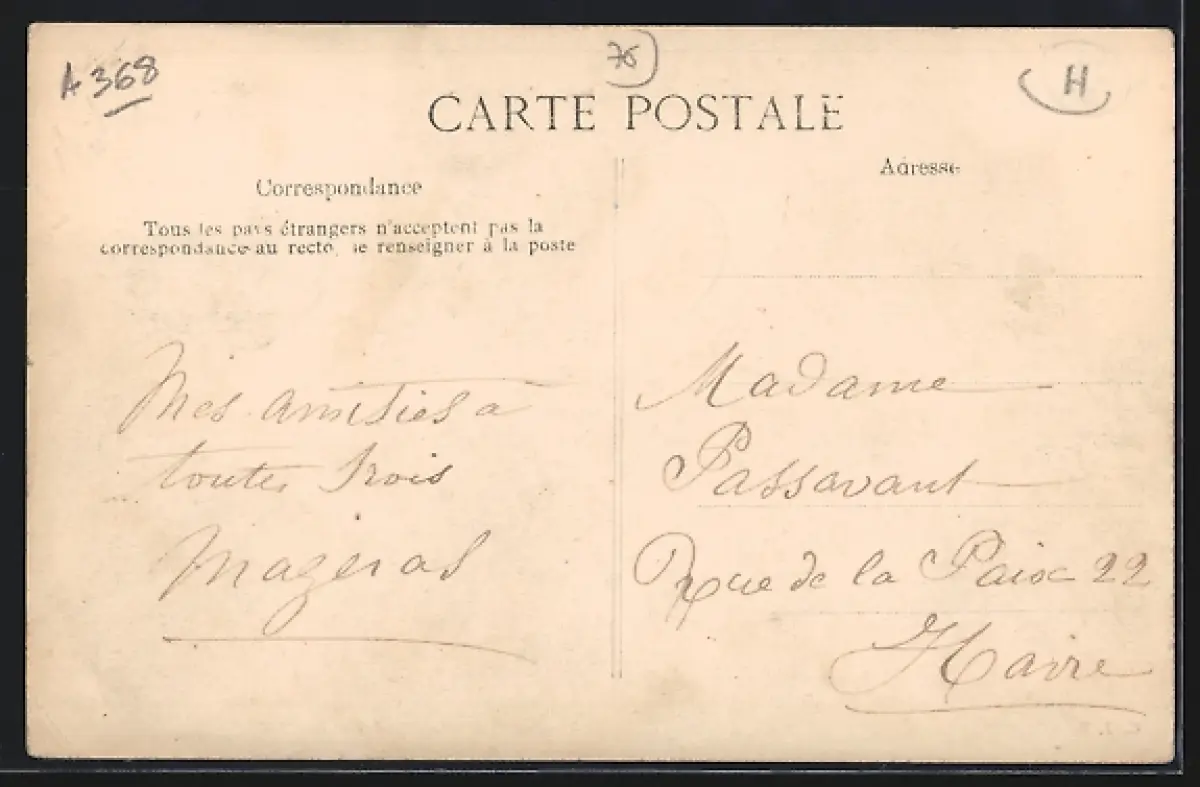 A 368
76
H
CARTE POSTALE
Correspondance
Tous les pays étrangers n'acceptent pas la
correspondance au recto, se renseigner à la poste
Adresse
Mes amitiés a
toutes trois
Mazeras
Madame
Passavant
Rue de la Paix 22
Havre